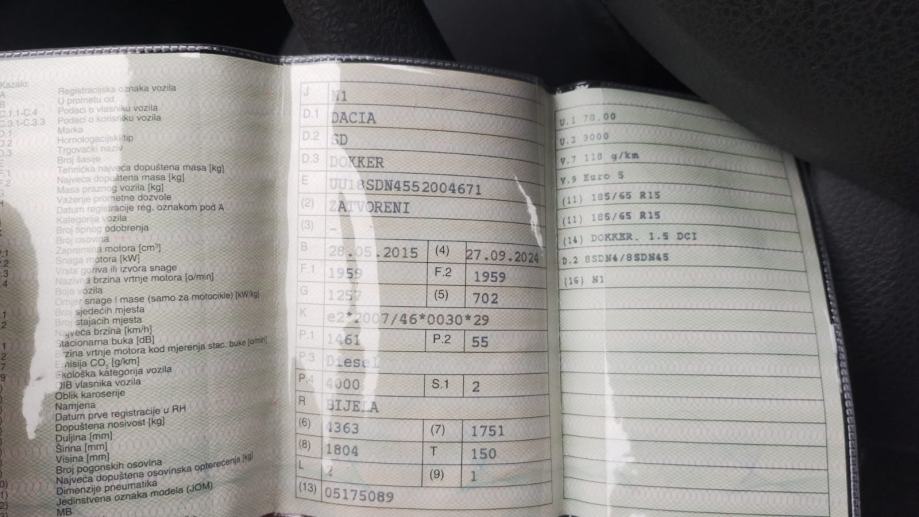 Kazalo:
A Registracijska oznaka vozila
B U prometu od
C.1.1-C.4 Podaci o vlasniku vozila
C.3.1-C.3.3 Podaci o korisniku vozila
D.1 Marka
D.2 Homologacijski tip
D.3 Trgovački naziv
Broj šasije
F.1 Tehnička najveća dopuštena masa [kg]
F.2 Najveća dopuštena masa [kg]
Masa praznog vozila [kg]
Važenje prometne dozvole
Datum registracije reg. oznakom pod A
Kategorija vozila
Broj tipnog odobrenja
Broj osovina
Zapremina motora [cm³]
Snaga motora [kW]
Vrsta goriva ili izvora snage
Nazivna brzina vrtnje motora [o/min]
Boja vozila
Omjer snage i mase (samo za motocikle) [kW/kg]
Broj sjedećih mjesta
Broj stajaćih mjesta
Najveća brzina [km/h]
Stacionarna buka [dB]
Brzina vrtnje motora kod mjerenja stac. buke [o/min]
Emisija CO₂ [g/km]
Ekološka kategorija vozila
OIB vlasnika vozila
Oblik karoserije
Namjena
Datum prve registracije u RH
Dopuštena nosivost [kg]
Duljina [mm]
Širina [mm]
Visina [mm]
Broj pogonskih osovina
Najveća dopuštena osovinska opterećenja [kg]
Dimenzije pneumatika
Jedinstvena oznaka modela (JOM)
MB
J N1
D.1 DACIA
D.2 SD
D.3 DOKKER
E UU18SDN4552004671
(2) ZATVORENI
(3) -
B 28.05.2015 (4) 27.09.2024
F.1 1959 F.2 1959
G 1257 (5) 702
K e2*2007/46*0030*29
P.1 1461 P.2 55
P.3 Diesel
P.4 4000 S.1 2
R BIJELA
(6) 4363 (7) 1751
(8) 1804 T 150
L 2 (9) 1
(13) 05175089
U.1 78.00
U.2 3000
V.7 118 g/km
V.9 Euro 5
(11) 185/65 R15
(11) 185/65 R15
(14) DOKKER. 1.5 DCI
D.2 8SDN4/8SDN45
(16) N1